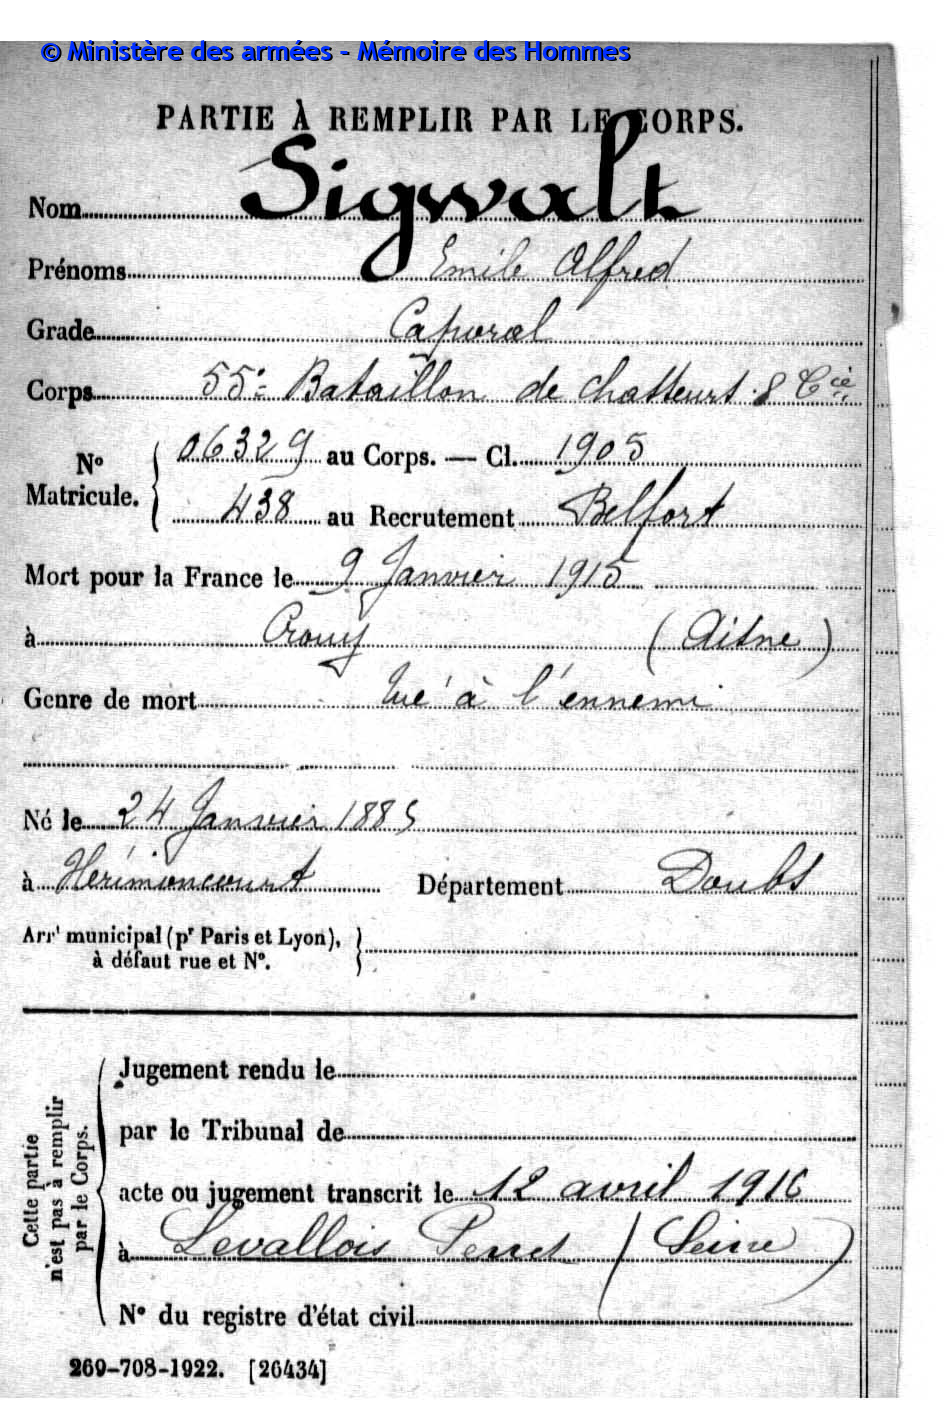 © Ministère des armées - Mémoire des Hommes
PARTIE À REMPLIR PAR LE CORPS.
Nom Sigwalt
Prénoms Emile Alfred
Grade Caporal
Corps 55e Bataillon de chasseurs 8 Cie
No Matricule. { 06329 au Corps. — Cl. 1905
438 au Recrutement Belfort
Mort pour la France le 9 Janvier 1915
à Crouy (Aisne)
Genre de mort tué à l'ennemi
Né le 24 Janvier 1885
à Hérimoncourt Département Doubs
Arrt municipal (pr Paris et Lyon),
à défaut rue et N°.
Cette partie
n'est pas à remplir
par le Corps.
Jugement rendu le
par le Tribunal de
acte ou jugement transcrit le 12 avril 1916
à Levallois Perret (Seine)
N° du registre d'état civil
269-708-1922. [26434]